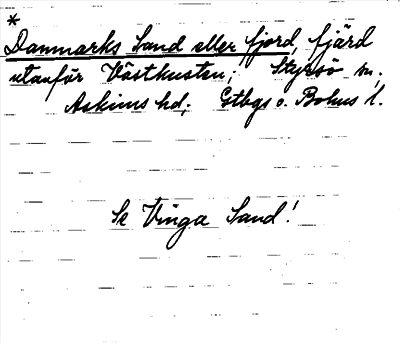 *
Danmarks Sand eller fjord, fjärd
utanför Västkusten; Styrsö sn,
Askims hd; Gtbgs o. Bohus l.
Se Vinga Sand!